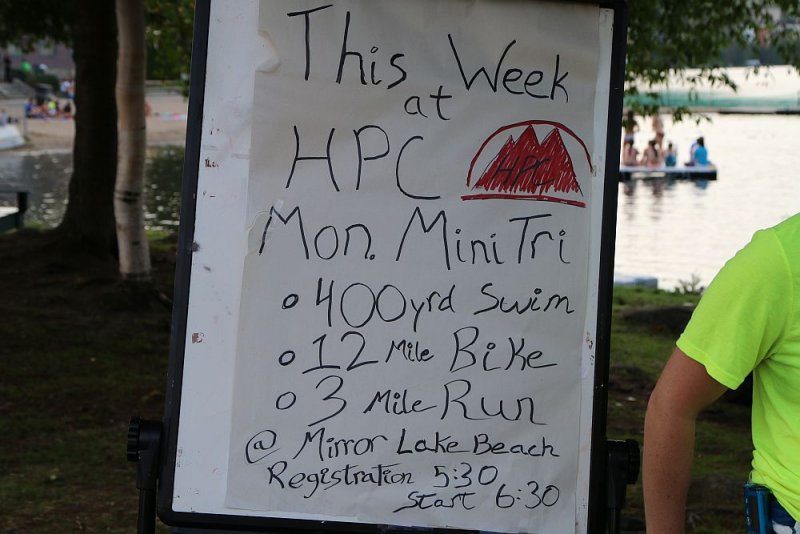 This Week
at
HPC HPC
Mon. Mini Tri
o 400yrd Swim
o 12 Mile Bike
o 3 Mile Run
@ Mirror Lake Beach
Registration 5:30
Start 6:30